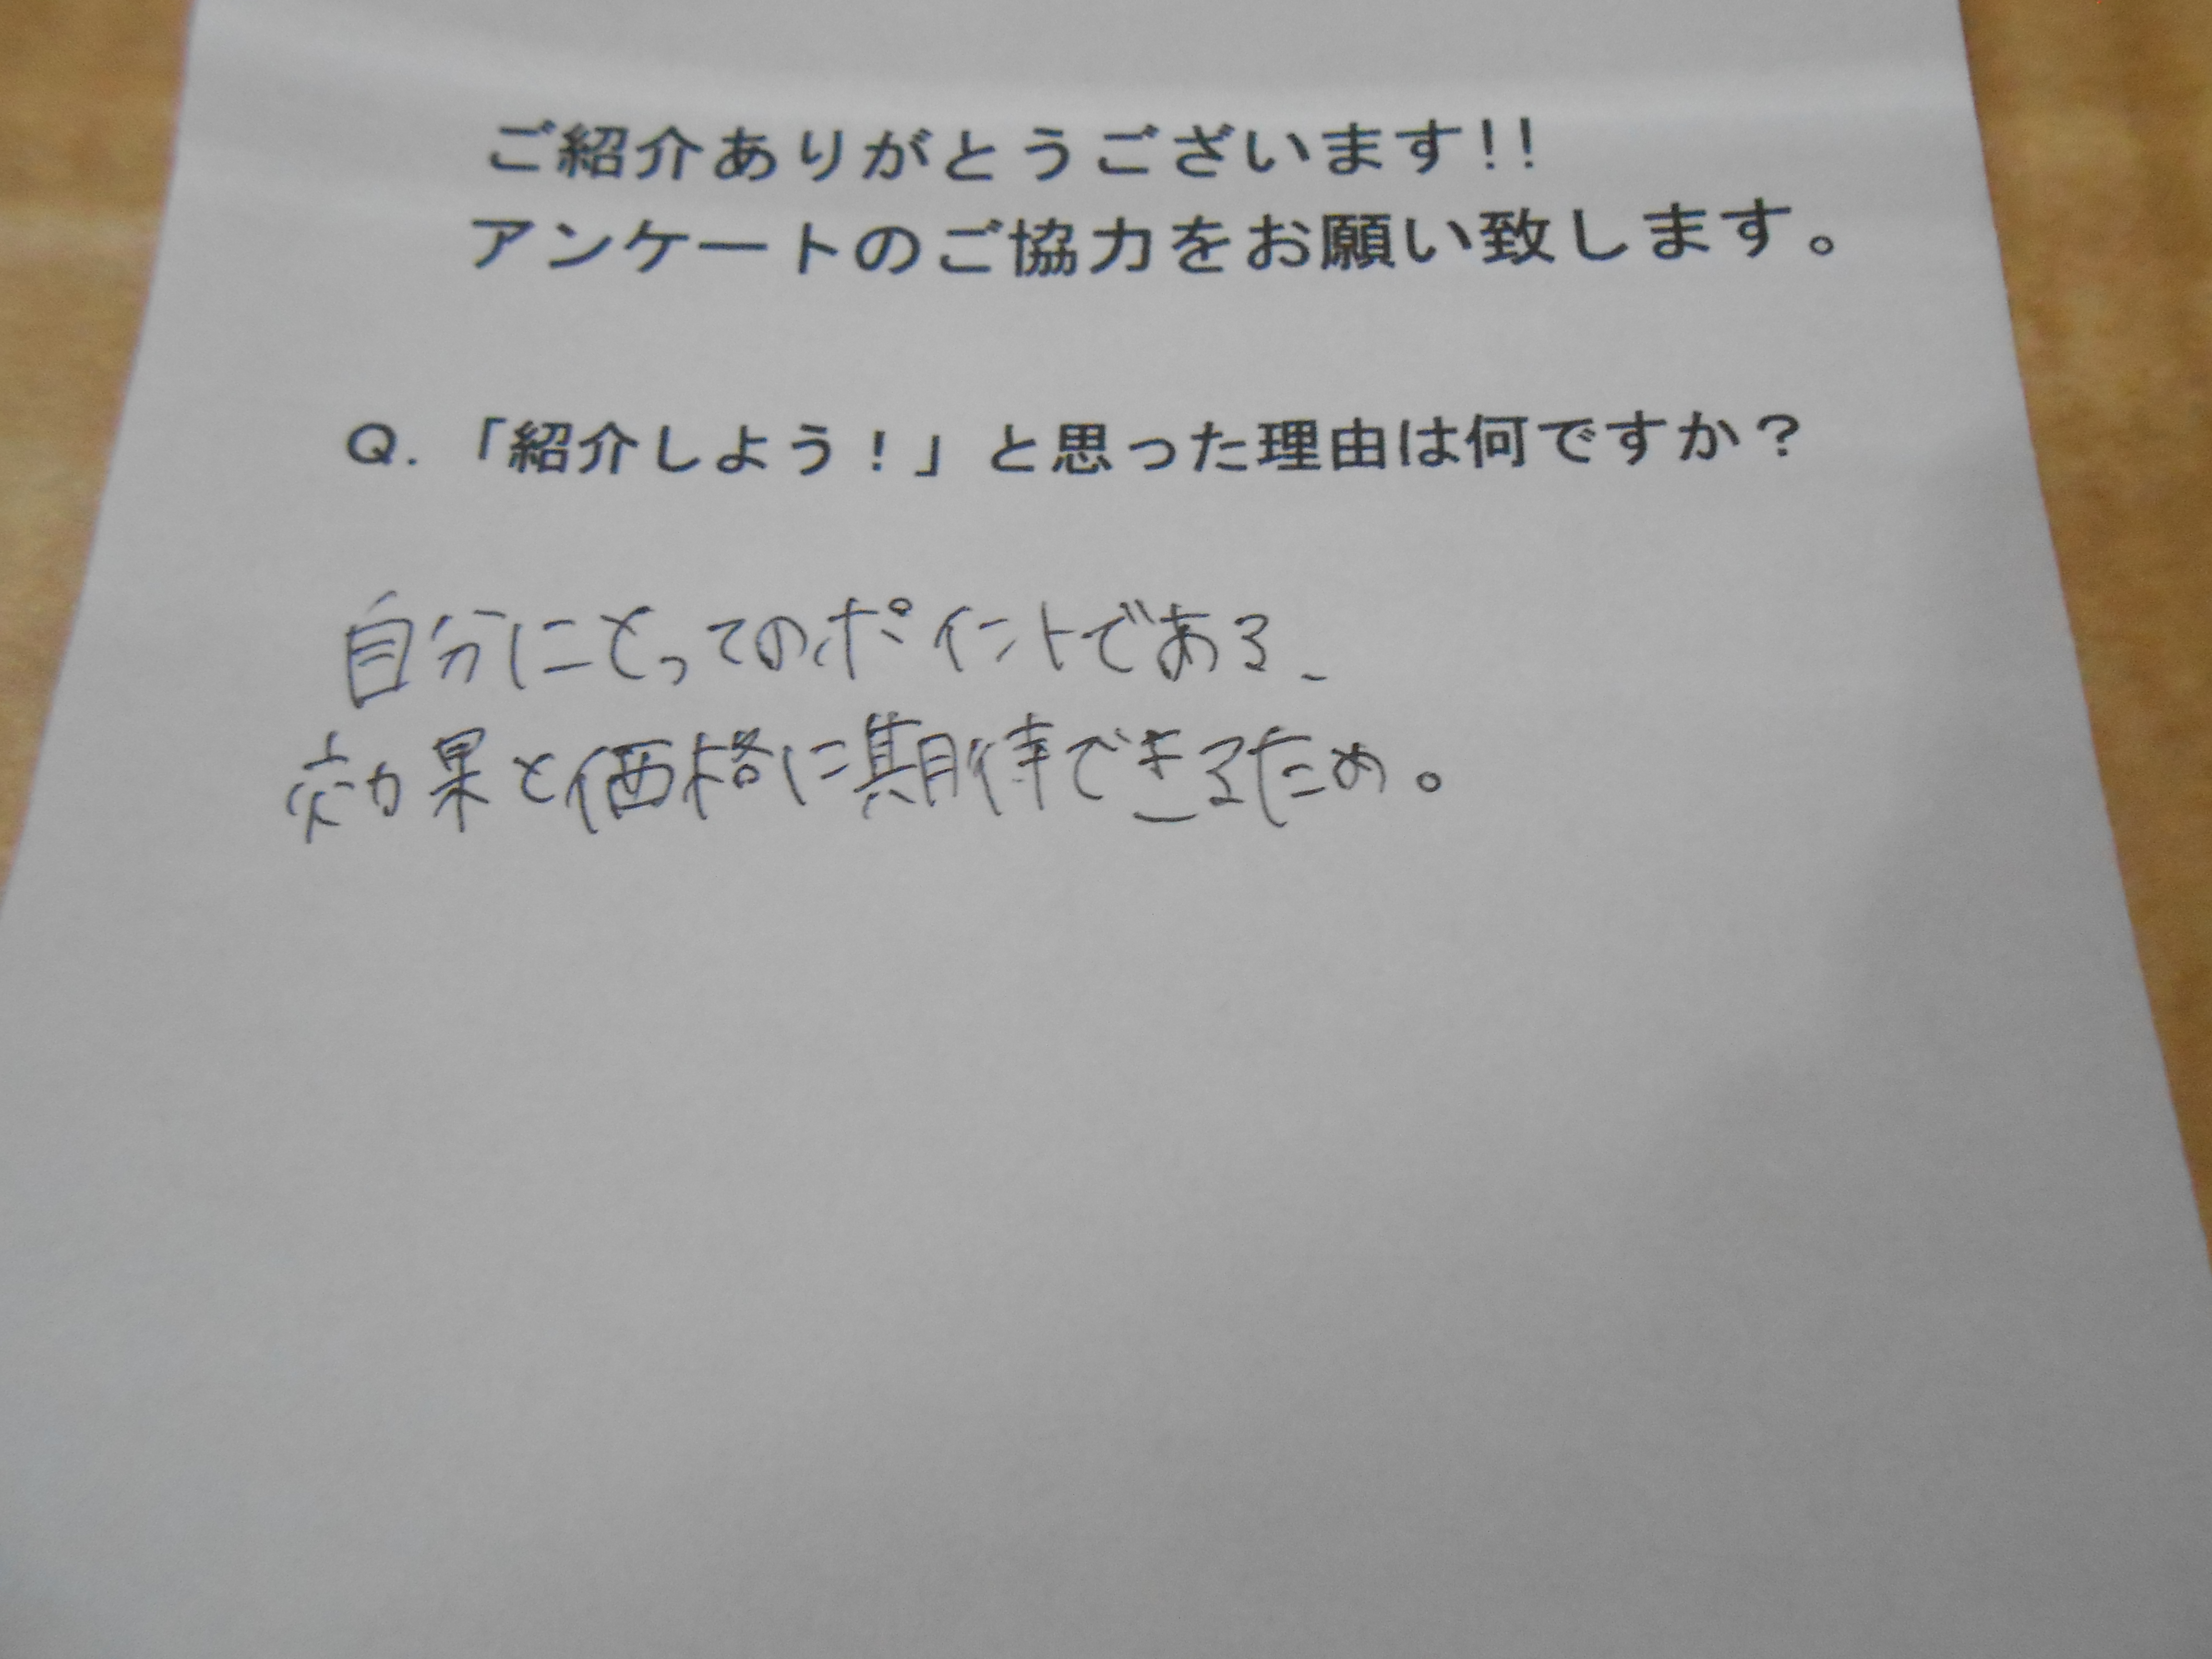 ご紹介ありがとうございます!!
アンケートのご協力をお願い致します。
Q.「紹介しよう！」と思った理由は何ですか？
自分にとってのポイントである、
効果と価格に期待できるため。